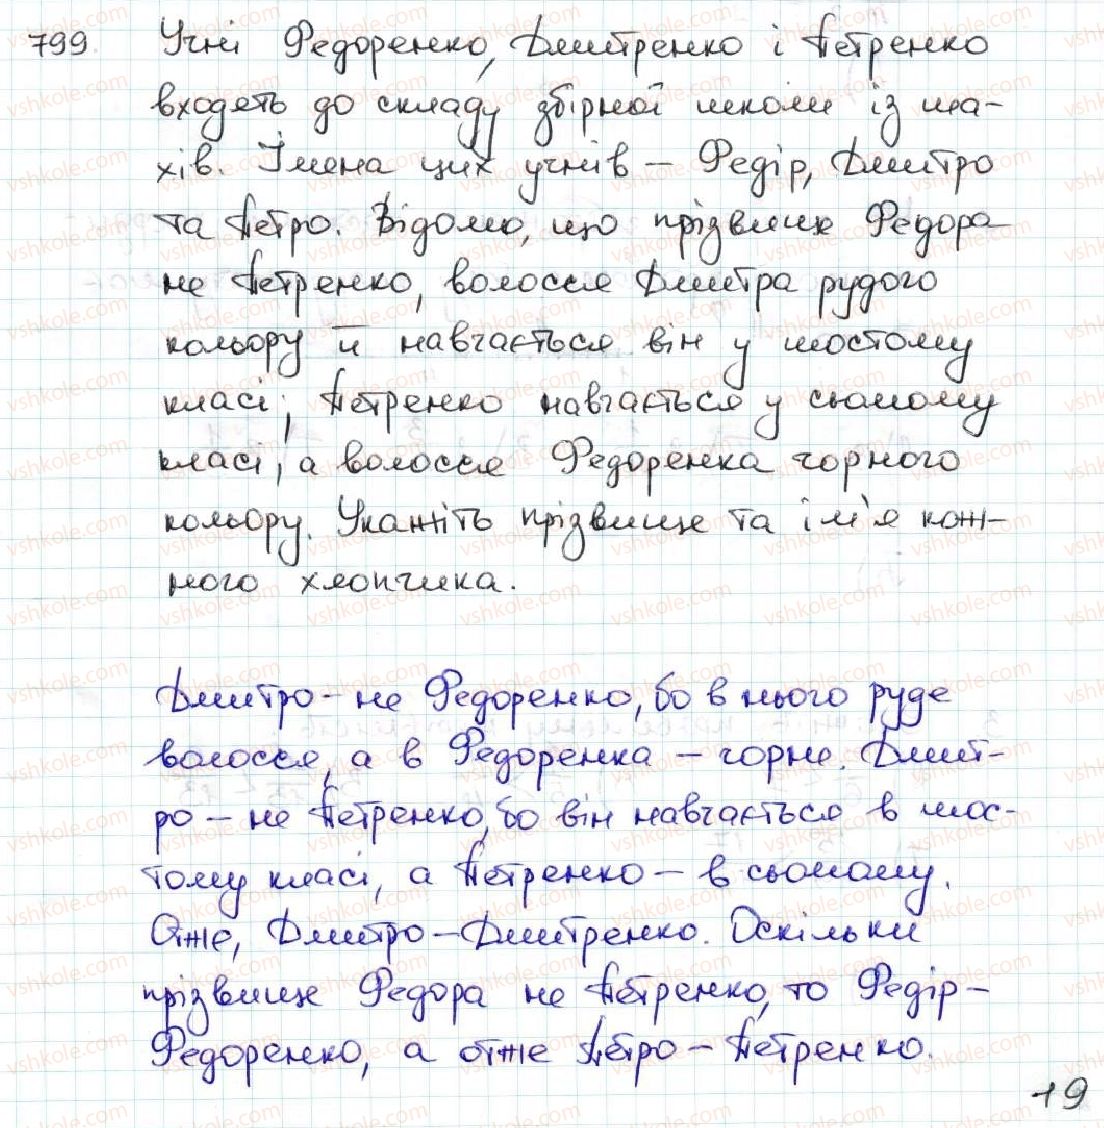 799. Учні Федоренко, Дмитренко і Петренко
входять до складу збірної школи із ша-
хів. Імена цих учнів – Федір, Дмитро
та Петро. Відомо, що прізвище Федора
не Петренко, волосся Дмитра рудого
кольору й навчається він у шостому
класі; Петренко навчається у сьомому
класі, а волосся Федоренка чорного
кольору. Укажіть прізвище та ім'я кож-
ного хлопчика.
Дмитро – не Федоренко, бо в нього руде
волосся, а в Федоренка – чорне. Дмит-
ро – не Петренко, бо він навчається в шос-
тому класі, а Петренко – в сьомому.
Отже, Дмитро – Дмитренко. Оскільки
прізвище Федора не Петренко, то Федір –
Федоренко, а отже Петро – Петренко.
19